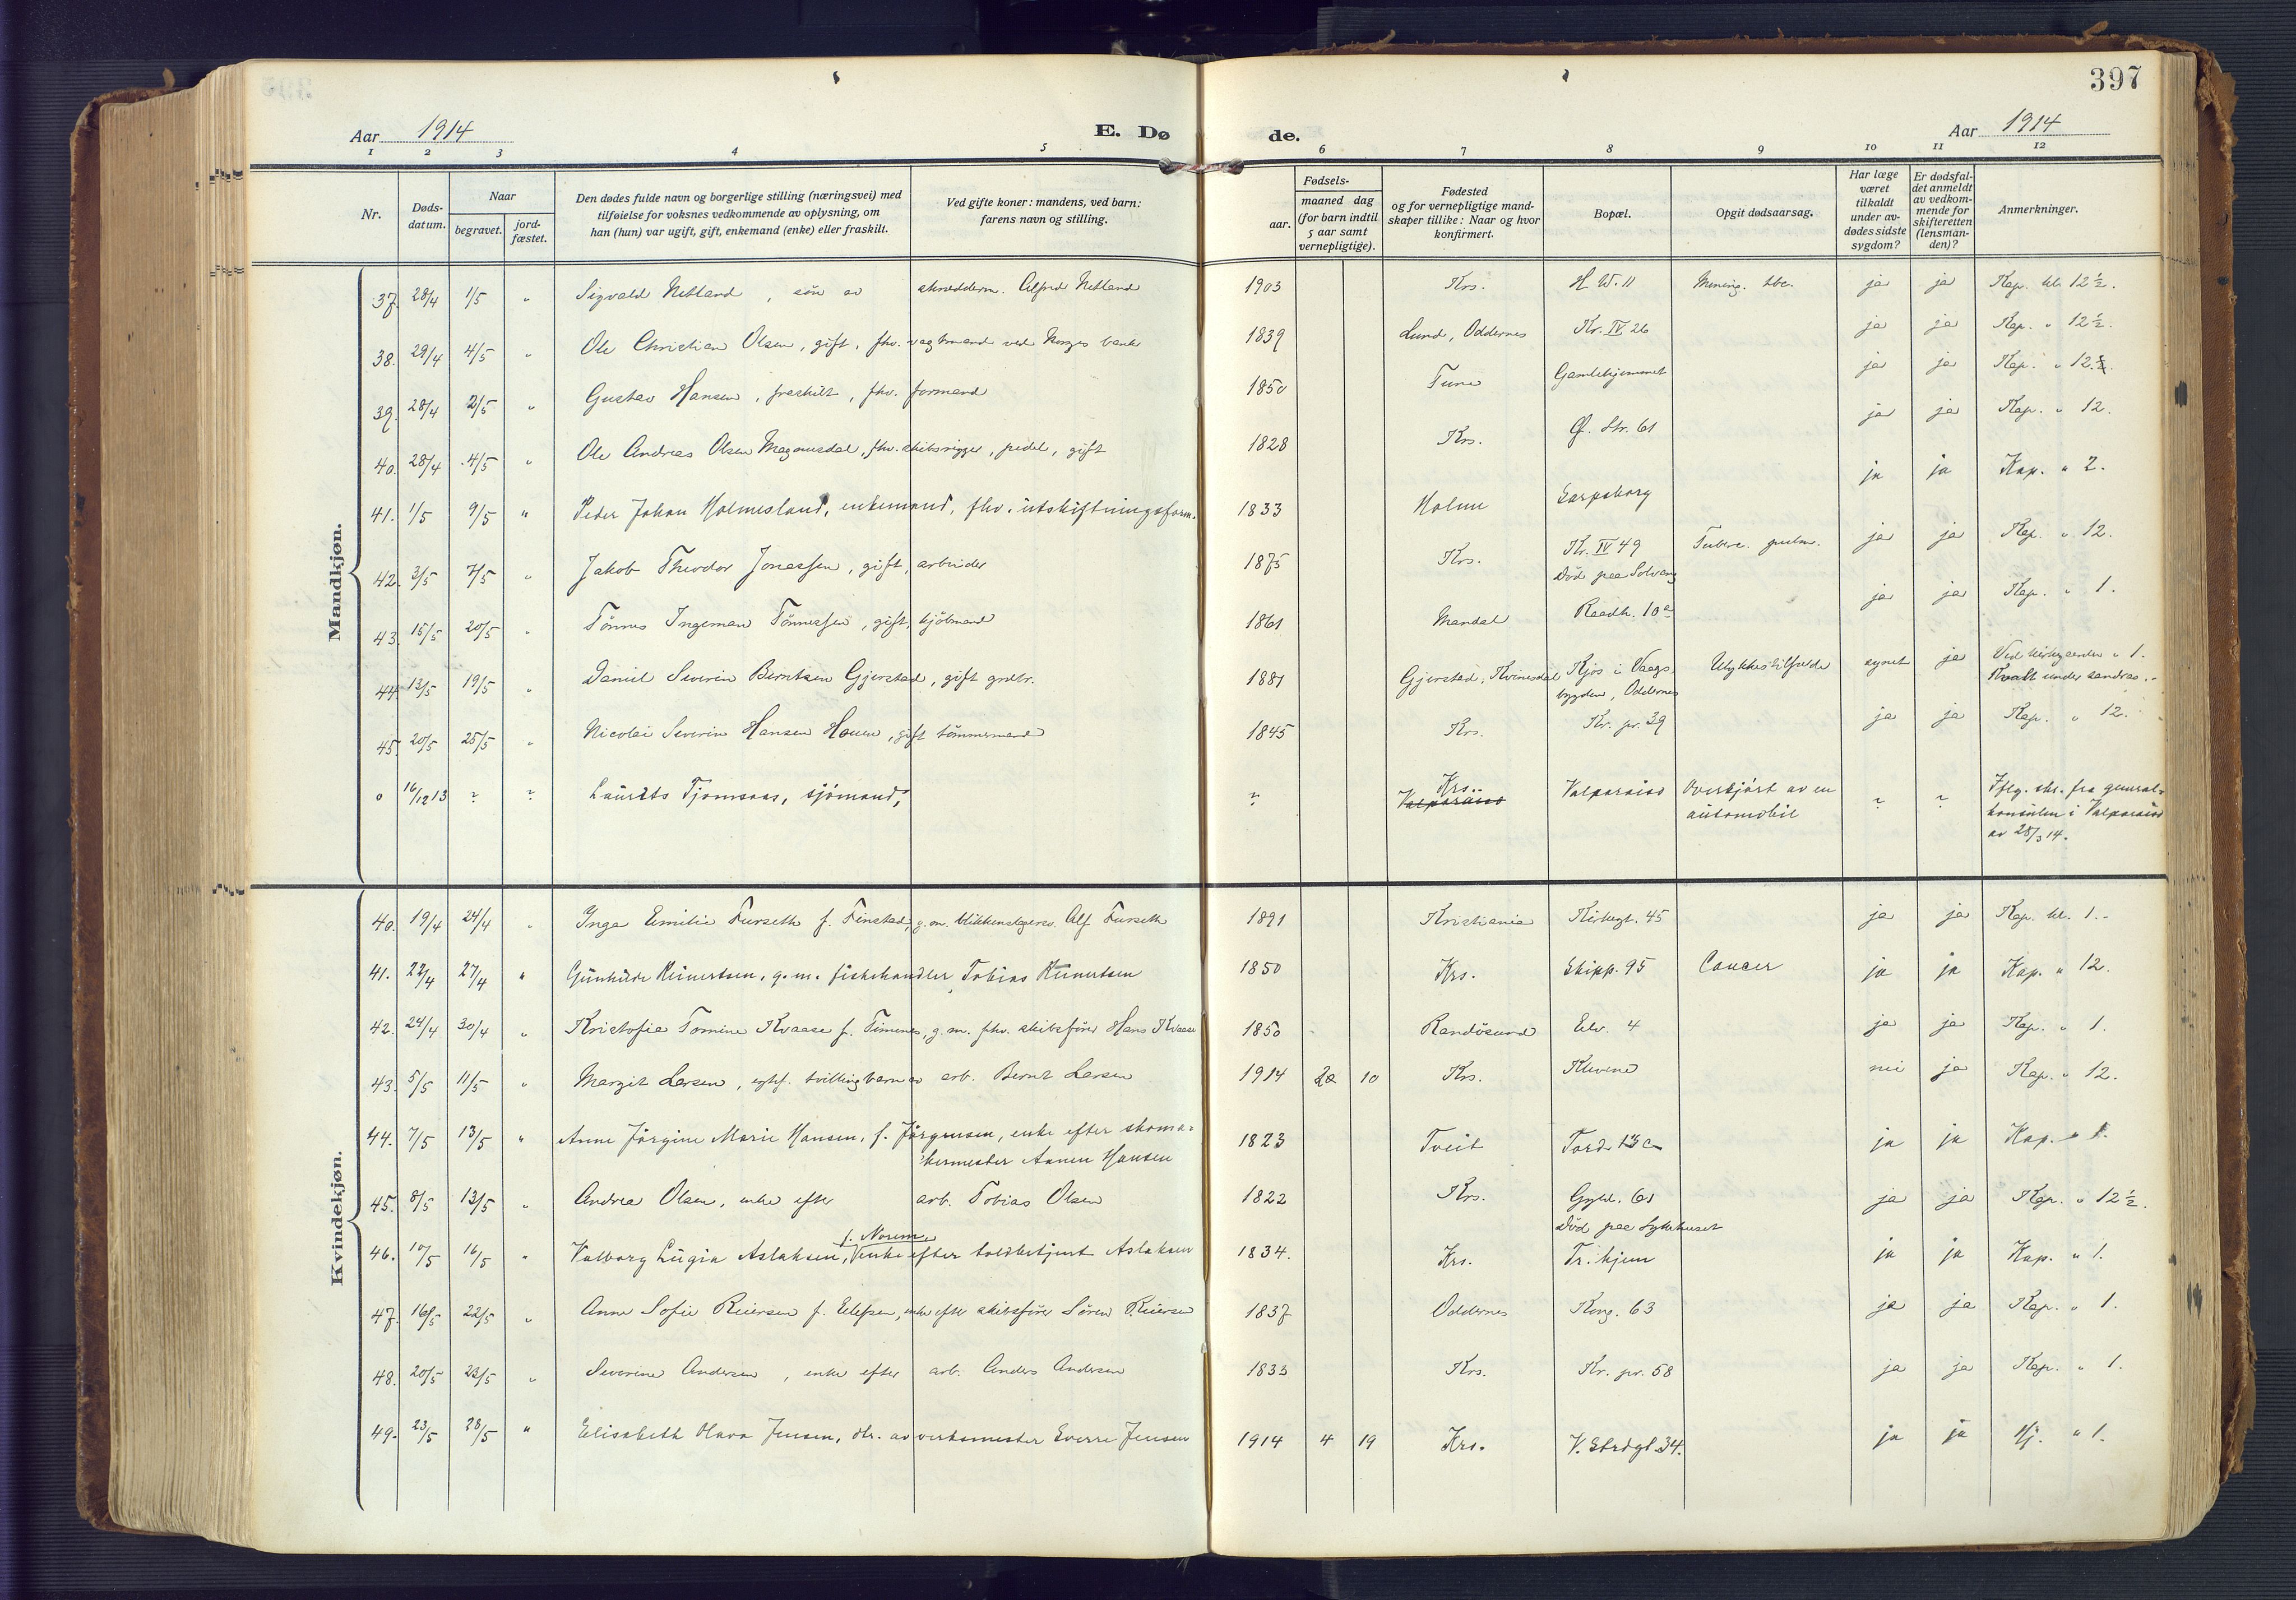 397
Aar 1914
E. Dø
de.
Aar 1914
1 2 3 4 5 6 7 8 9 10 11 12
Nr.
Døds-
datum.
Naar
begravet.
jord-
fæstet.
Den dødes fulde navn og borgerlige stilling (næringsvei) med
tilføielse for voksnes vedkommende av oplysning, om
han (hun) var ugift, gift, enkemand (enke) eller fraskilt.
Ved gifte koner: mandens, ved barn:
farens navn og stilling.
Fødsels-
aar.
maaned dag
(for barn indtil
5 aar samt
vernepligtige).
Fødested
og for vernepligtige mand-
skaper tillike: Naar og hvor
konfirmert.
Bopæl.
Opgit dødsaarsag.
Har læge
været
tilkaldt
under av-
dødes sidste
sygdom?
Er dødsfal-
det anmeldt
av vedkom-
mende for
skifteretten
(lensman-
den)?
Anmerkninger.
Mandkjøn.
37. 28/4 1/5 " Sigvald Netland, søn av skrædderm. Alfred Netland 1903 Krs. H. W. 11 Mening. tbc. ja ja Kap. kl. 12 1/2.
38. 29/4 4/5 " Ole Christian Olsen, gift, fhv. vagtmand ved Norges bank 1839 Lund, Oddernes Kr. IV 26 ja ja Kap. " 12 1/2.
39. 28/4 2/5 " Gustav Hansen, fraskilt, fhv. formand 1850 Tune Gamlehjemmet ja ja Kap. " 12.
40. 28/4 4/5 " Ole Andreas Olsen Magnusdal, fhv. skibsrigger, pedel, gift 1828 Krs. Ø. Str. 61 ja ja Kap. " 12.
41. 1/5 9/5 " Peder Johan Holmesland, enkemand, fhv. utskiftningsform. 1833 Holme Sarpsborg ja ja Kap. " 2.
42. 3/5 7/5 " Jakob Theodor Jonassen, gift, arbeider 1875 Krs. Kr. IV 49 Tuberc. pulm. ja ja Kap. " 12.
Død paa Solvang
43. 15/5 20/5 " Tønnes Ingeman Tønnessen, gift, kjøbmand 1861 Mandal Raadh. 10a ja ja Kap. " 1.
44. 13/5 19/5 " Daniel Severin Berntsen Gjerstad, gift grdbr. 1881 Gjerstad, Kvinesdal Kjos i Vaags- Ulykkestilfælde synet ja Ved kirkegaarden " 1.
bygden, Oddernes Kvalt under sandras.
45. 20/5 25/5 " Nicolai Severin Hansen Hauen, gift tømmermand 1845 Krs. Kr. pr. 39 ja ja Kap. " 12.
0 16/12 13 ? ? Laurits Tjomsaas, sjømand, ? Krs. Valparaiso Overkjørt av en ? ? Iflg. skr. fra general-
Valparaiso automobil konsulen i Valparaiso
av 28/3 14.
Kvindekjøn.
40. 19/4 24/4 " Inga Emilie Furseth f. Finstad, g. m. blikkenslagersv. Alf Furseth 1891 Kristiania Kirkegt. 45 ja ja Kap. kl. 1.
41. 22/4 27/4 " Gunhilde Reinertsen, g. m. fiskehandler Tobias Reinertsen 1850 Krs. Skipp. 95 Cancer ja ja Kap. " 12.
42. 24/4 30/4 " Kristofia Tomine Kvaase f. Timenes, g. m. fhv. skibsfører Hans Kvaase 1850 Randøsund Elv. 4 ja ja Kap. " 1.
43. 5/5 11/5 " Margit Larsen, egtef. tvillingbarn av arb. Bernt Larsen 1914 10 Krs. Klevene nei ja Kap. " 12.
44. 7/5 13/5 " Anne Jørgine Marie Hansen, f. Jørgensen, enke efter skoma-
kermester Hansen 1823 Tveit Tord. 13c ja ja Kap. " 1.
45. 8/5 13/5 " Andrea Olsen, enke efter arb. Tobias Olsen 1822 Krs. Gyld. 61 ja ja Kap. " 12 1/2.
Død paa Sykehuset
f. Norem
46. 10/5 16/5 " Valborg Lugia Aslaksen, enke efter toldbetjent Aslaksen 1834. Krs. Tr. hjem ja ja Kap. " 1.
47. 16/5 22/5 " Anne Sofie Reiersen f. Eilefsen, enke efter skibsfører Søren Reiersen 1837 Oddernes Kong. 63 ja ja Kap. " 1.
48. 20/5 23/5 " Severine Andersen, enke efter arb. Anders Andersen 1833 Krs. Kr. pr. 58 ja ja Kap. " 1.
49. 23/5 28/5 " Elisabeth Olava Jensen, dtr. av verksmester Sverre Jensen 1914 4 19 Krs. V. Strdgt. 34. ja ja Hj. " 1.